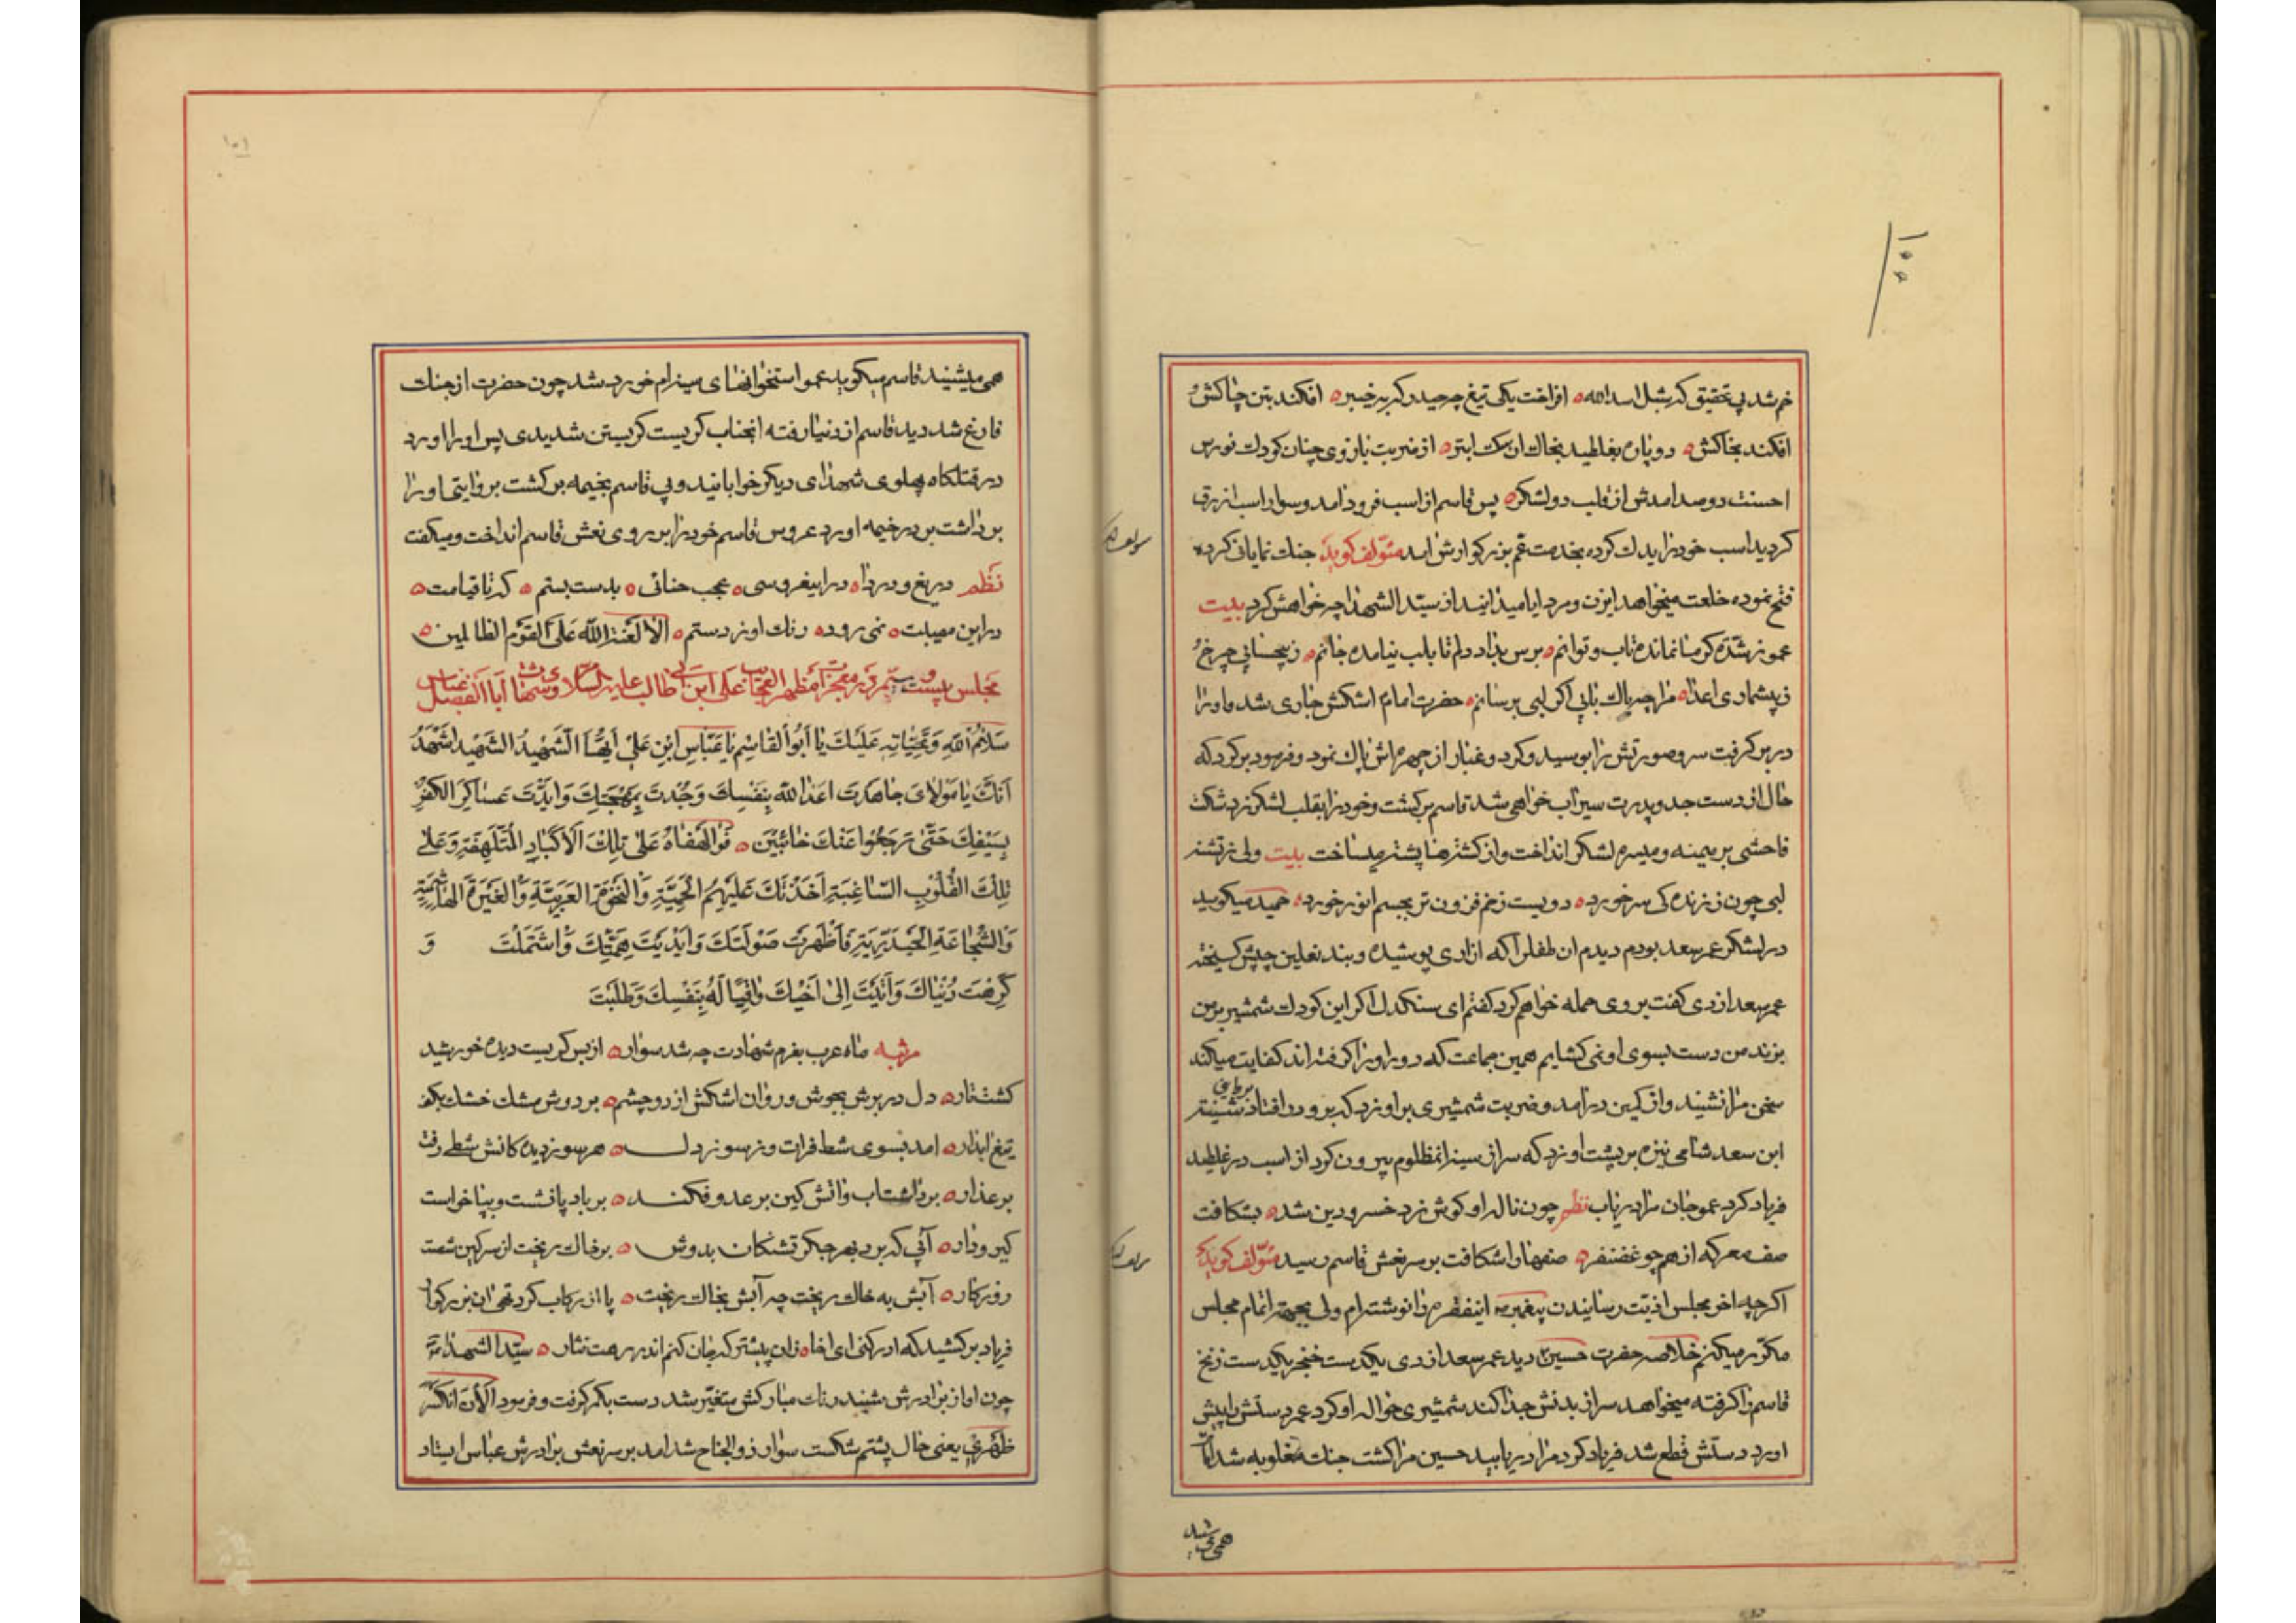 ۱۰۰
خم شد پی تحقیق که شبل اسدالله ٥ افراخت یکی تیغ چو حیدر که بر خیبر ٥ افکند بتن چاکش و
افکند بخاکش ٥ دو پاره بغلطید بخاک ان سک ابتر ٥ از ضربت بازوی چنان کودک نورس
احسنت دو صد امدش از قلب دو لشکر ٥ پس قاسم از اسب فرود امد و سوار اسب ازرق
کردید اسب خود را یدک کرده بخدمت عم بزرکوارش امد مؤلف کوید جنک نمایان کرده
فتح نموده خلعت میخواهد ایزن و مرد ایا میدانید از سید الشهدا چه خواهش کرد بیت
عمو ز تشنه کر ما نمانده تاب و توانم ٥ برس بداد دلم تا بلب نیامده جانم ٥ ز چرخ
ز پیشماری اعدا ٥ مرا چه باک بابی اکر لبی برسانم ٥ حضرت امام اشکش جاری شد و او را
در بر کرفت سر و صورتش را بوسید و کرد و غبار از چهره اش پاک نمود و فرمود برکرد که
حال از دست جد و پدرت سیراب خواهی شد قاسم برکشت و خود را بقلب لشکر زد شکست
فاحشی بر میمنه و میسره لشکر انداخت و از کشته ها پشته میساخت بیت ولی ز تشنه
لبی چون ز زنده کی سر خورد ٥ دویست زخم فزون تر بجسم انور خورد ٥ حمید میکوید
در لشکر عمر سعد بودم دیدم ان طفلرا که ازاری پوشیده و بند نعلین چپش کسیخته
عمر سعد ازدی کفت بر وی حمله خواهم کرد کفتم ای سنکدل اکر این کودک شمشیر بر من
بزند من دست بسوی او نمی کشایم همین جماعت که دور او را کرفته اند کفایت میکند
سخن مرا نشنید و از کمین درامد و ضربت شمشیری بر او زد که برو در افتاد شیبة
ابن سعد شامی نیزه بر پشت او زد که سر از سینه انمظلوم بیرون کرد از اسب در غلطید
فریاد کرد عمو جان مرا دریاب نظم چون ناله او کوش زد خسرو دین شد ٥ بشکافت
صف معرکه از هم چو غضنفر ٥ صفها را شکافت بر سر نعش قاسم رسید مؤلف کوید
اکرچه اخر مجلس اذیت رسانیدن پیغمبر اینفقره را نوشته ام ولی بجهة اتمام مجلس
مکرر میکنم خلاصه حضرت حسین دید عمر سعد ازدی یکدست خنجر یکدست زنخ
قاسم را کرفته میخواهد سر از بدنش جدا کند شمشیری حواله او کرد عمر دستش را پیش
اورد دستش قطع شد فریاد کرد مرا دریابید حسین مرا کشت جنک مغلوبه شد اما
همی شنید
۱۰۱
همی میشنید قاسم میکوید عمو استخوانهای سینه ام خورد شد چون حضرت از جنک
فارغ شد دید قاسم از دنیا رفته انجناب کریست کریستن شدیدی پس او را اورد
در قتلکاه پهلوی شهدای دیکر خوابانید و بی قاسم بخیمه برکشت بروایتی او را
برداشت بدر خیمه اورد عروس قاسم خود را بر روی نعش قاسم انداخت و میکفت
نظم دریغ و دردا ٥ در اینعروسی ٥ عجب حنائی ٥ بدست بستم ٥ که تا قیامت ٥
در این مصیبت ٥ نمی رود ٥ رنک او ز دستم ٥ الا لعنة الله علی القوم الظالمین ٥
مجلس بیست و سیم در معجزات مظهر العجایب علی ابن ابی طالب علیه السلام و شهادت اباالفضل عباس
سَلامُ اللهِ وَتَحِیّاتِهِ عَلَیْكَ یا اَبُوالقاسِم یا عَبّاسِ ابْنِ عَلیّ اَیُّهَا الشَّهیدُ الشَّهید اَشْهَدُ
اَنَّكَ یا مَوْلایَ جاهَدْتَ اَعْداءَ الله بِنَفْسِكَ وَجُدْتَ بِمُهْجَتِكَ وَاَبَدْتَ عَساکِرَ الکُفْرِ
بِسَیْفِكَ حَتّی تَرَجَعُوا عَنْكَ خائِبینَ ٥ فَوا لَهْفاهُ عَلی تِلْكَ الاَکْبادِ المُتَلَهِّفَةِ وَعَلی
تِلْكَ القُلُوبِ السّاغِبَةِ اَخَذَتْكَ عَلَیْهِمُ الحَمِیَّةِ وَالنَّخْوَةِ العَرَبِیَّةِ وَالغَیْرَةِ الهاشِمِیَّةِ
وَالشَّجاعَةِ الحَیْدَرِیَّةِ فَاَظْهَرْتَ صَوْلَتَكَ وَاَبْدَیْتَ هِمَّتِكَ وَاشْتَمَلْتَ وَ
کَرِهْتَ دُنْیاكَ وَاَتَیْتَ اِلی اَخیكَ واقِیاً لَهُ بِنَفْسِكَ وَطَلَبْتَ
مرثیه ماه عرب بعزم شهادت چه شد سوار ٥ از بس کریست دیده خورشید
کشت تار ٥ دل در برش بجوش و روان اشکش از دو چشم ٥ بر دوش مشک خشک بکف
تیغ ابدار ٥ امد بسوی شط فرات و ز سوز دل ٥ هر سو ز دیده کانش شطی رفت
بر عذار ٥ برداشت اب و اتش کین بر عدو فکند ٥ بر باد پا نشست و بپا خواست
کیر و دار ٥ آبی که برد بهر جکر تشنکان بدوش ٥ بر خاک ریخت از سر کین شصت
روزکار ٥ آبش به خاک ریخت چه آبش بخاک ریخت ٥ پا از رکاب کرد تهی ان بزرکوار
فریاد برکشید که ادرکنی ای اخا ٥ زان پیشتر که جان کنم اندر رهت نثار ٥ سید الشهداء
چون اواز برادرش شنید رنک مبارکش متغیر شد دست بکمر کرفت و فرمود الأن انکسر
ظهری یعنی حال پشتم شکست سوار ذوالجناح شد امد بر سر نعش برادرش عباس ایستاد